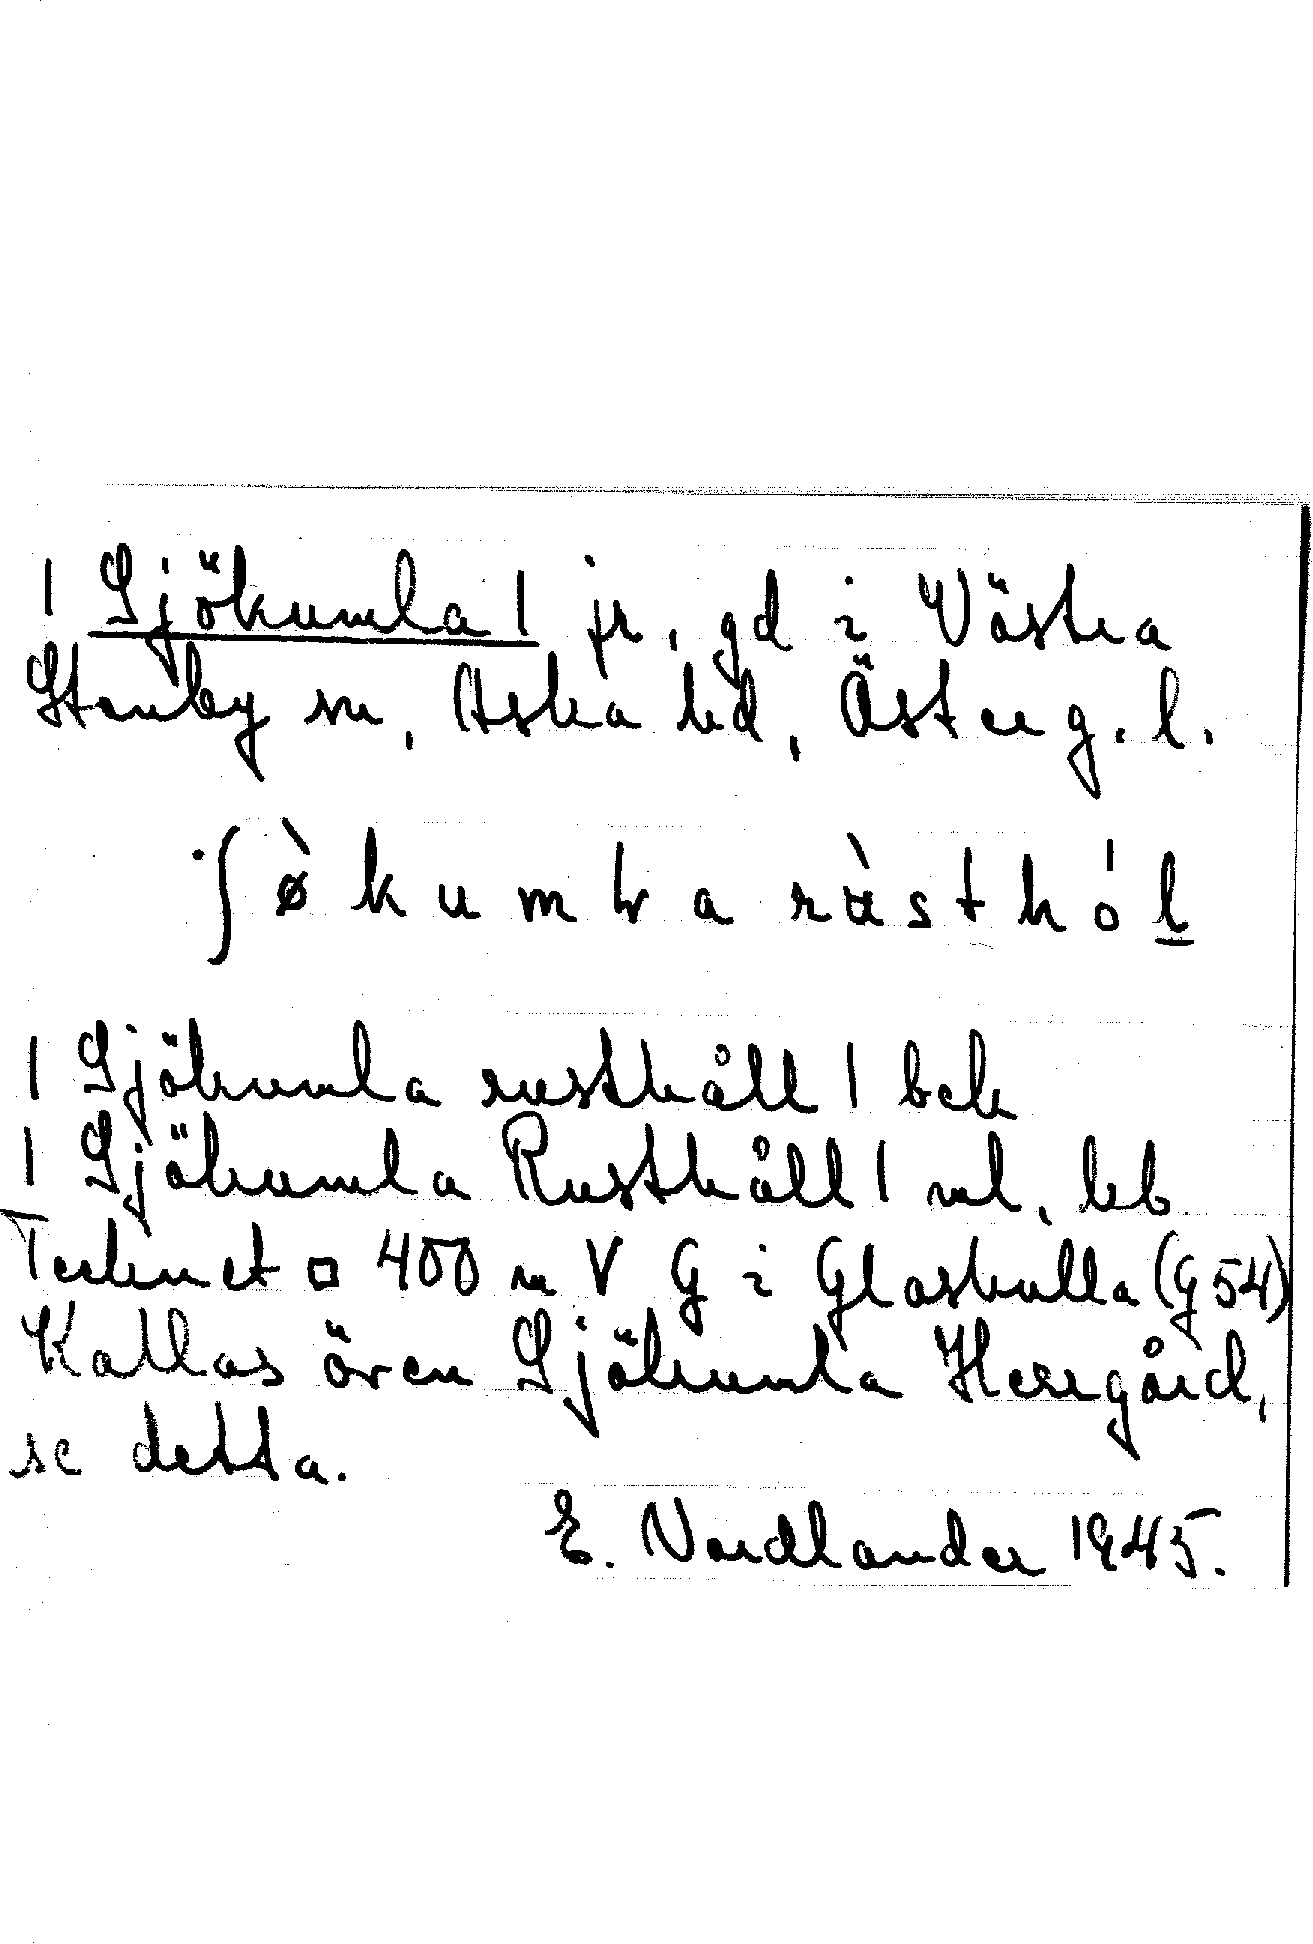 | Sjökumla | fr, gd i Västra
Stenby sn, Aska hd, Österg. l.
| Sjökumla rusthåll | bek
| Sjökumla Rusthåll |
Tecknet □ 400 m V G i Glaskulla (G 54)
Kallas även Sjökumla Herrgård,
se detta.
E. Nordlander 1945.